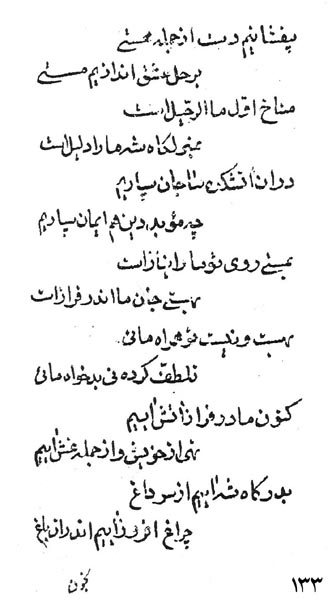 بیفشانیم دست از جمله هستی
عشق اندازیم مستی
مناخ اول ما الرحیل است
شه ما را دلیل است
در ان اتشکده تا جان سپاریم
چه مؤبد دین هم ایمان سپاریم
روی تو ما را نیاز است
بهستی جان ما اندر فراز است
بهست و نیست تو همراه مائی
تلطف کرده نی بدخواه مائی
کنون ما در فراز اتش اییم
تهی از خویش و از جمله غش اییم
بدرگاه شه اییم از سر داغ
چراغ افروز اییم اندر ان باغ
کنون
۱۳۳